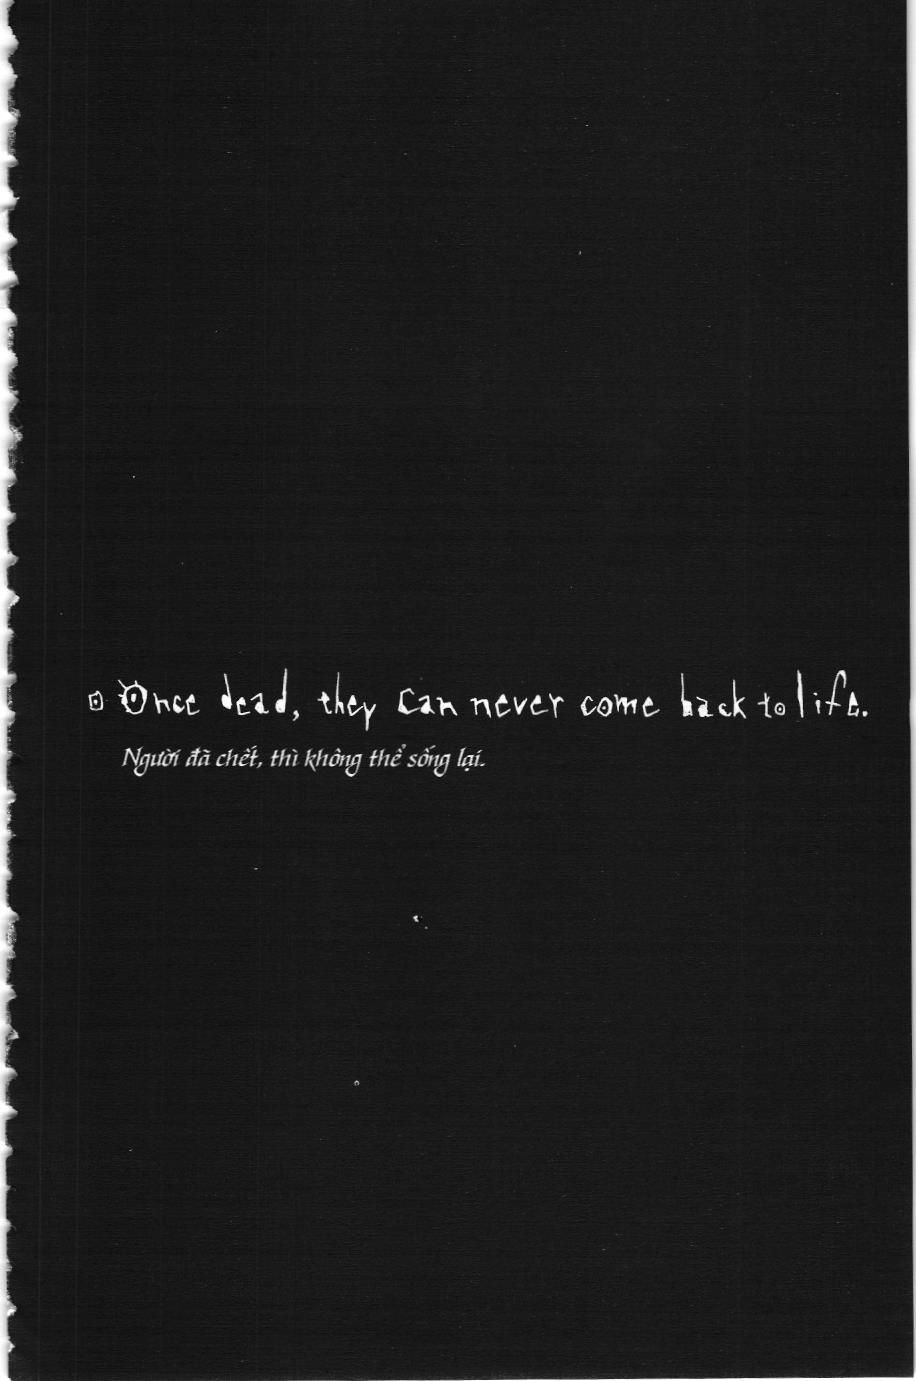 Once dead, they can never come back to life.
Người đã chết, thì không thể sống lại.